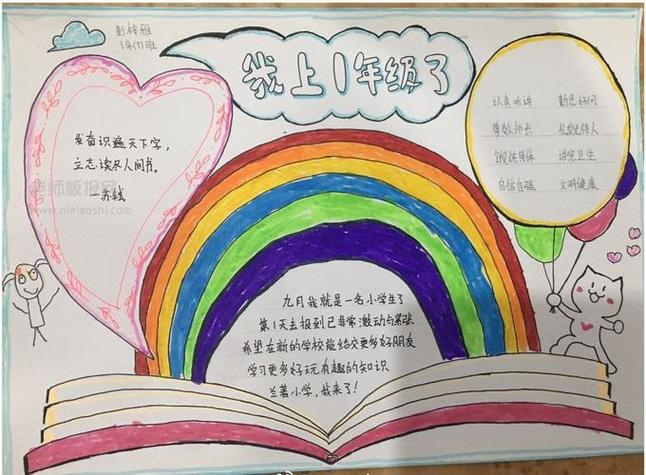 彭梓雅
1年(7)班
我上1年级了
发奋识遍天下字,
立志读尽人间书。
—苏轼
老师板报网
www.nielaoshi.com
认真听讲 勤思好问
尊敬师长 礼貌待人
锻炼身体 讲究卫生
自信自强 文明健康
九月我就是一名小学生了
第1天去报到已非常激动与紧张
希望在新的学校能结交更多好朋友
学习更多好玩有趣的知识
兰著小学,我来了!